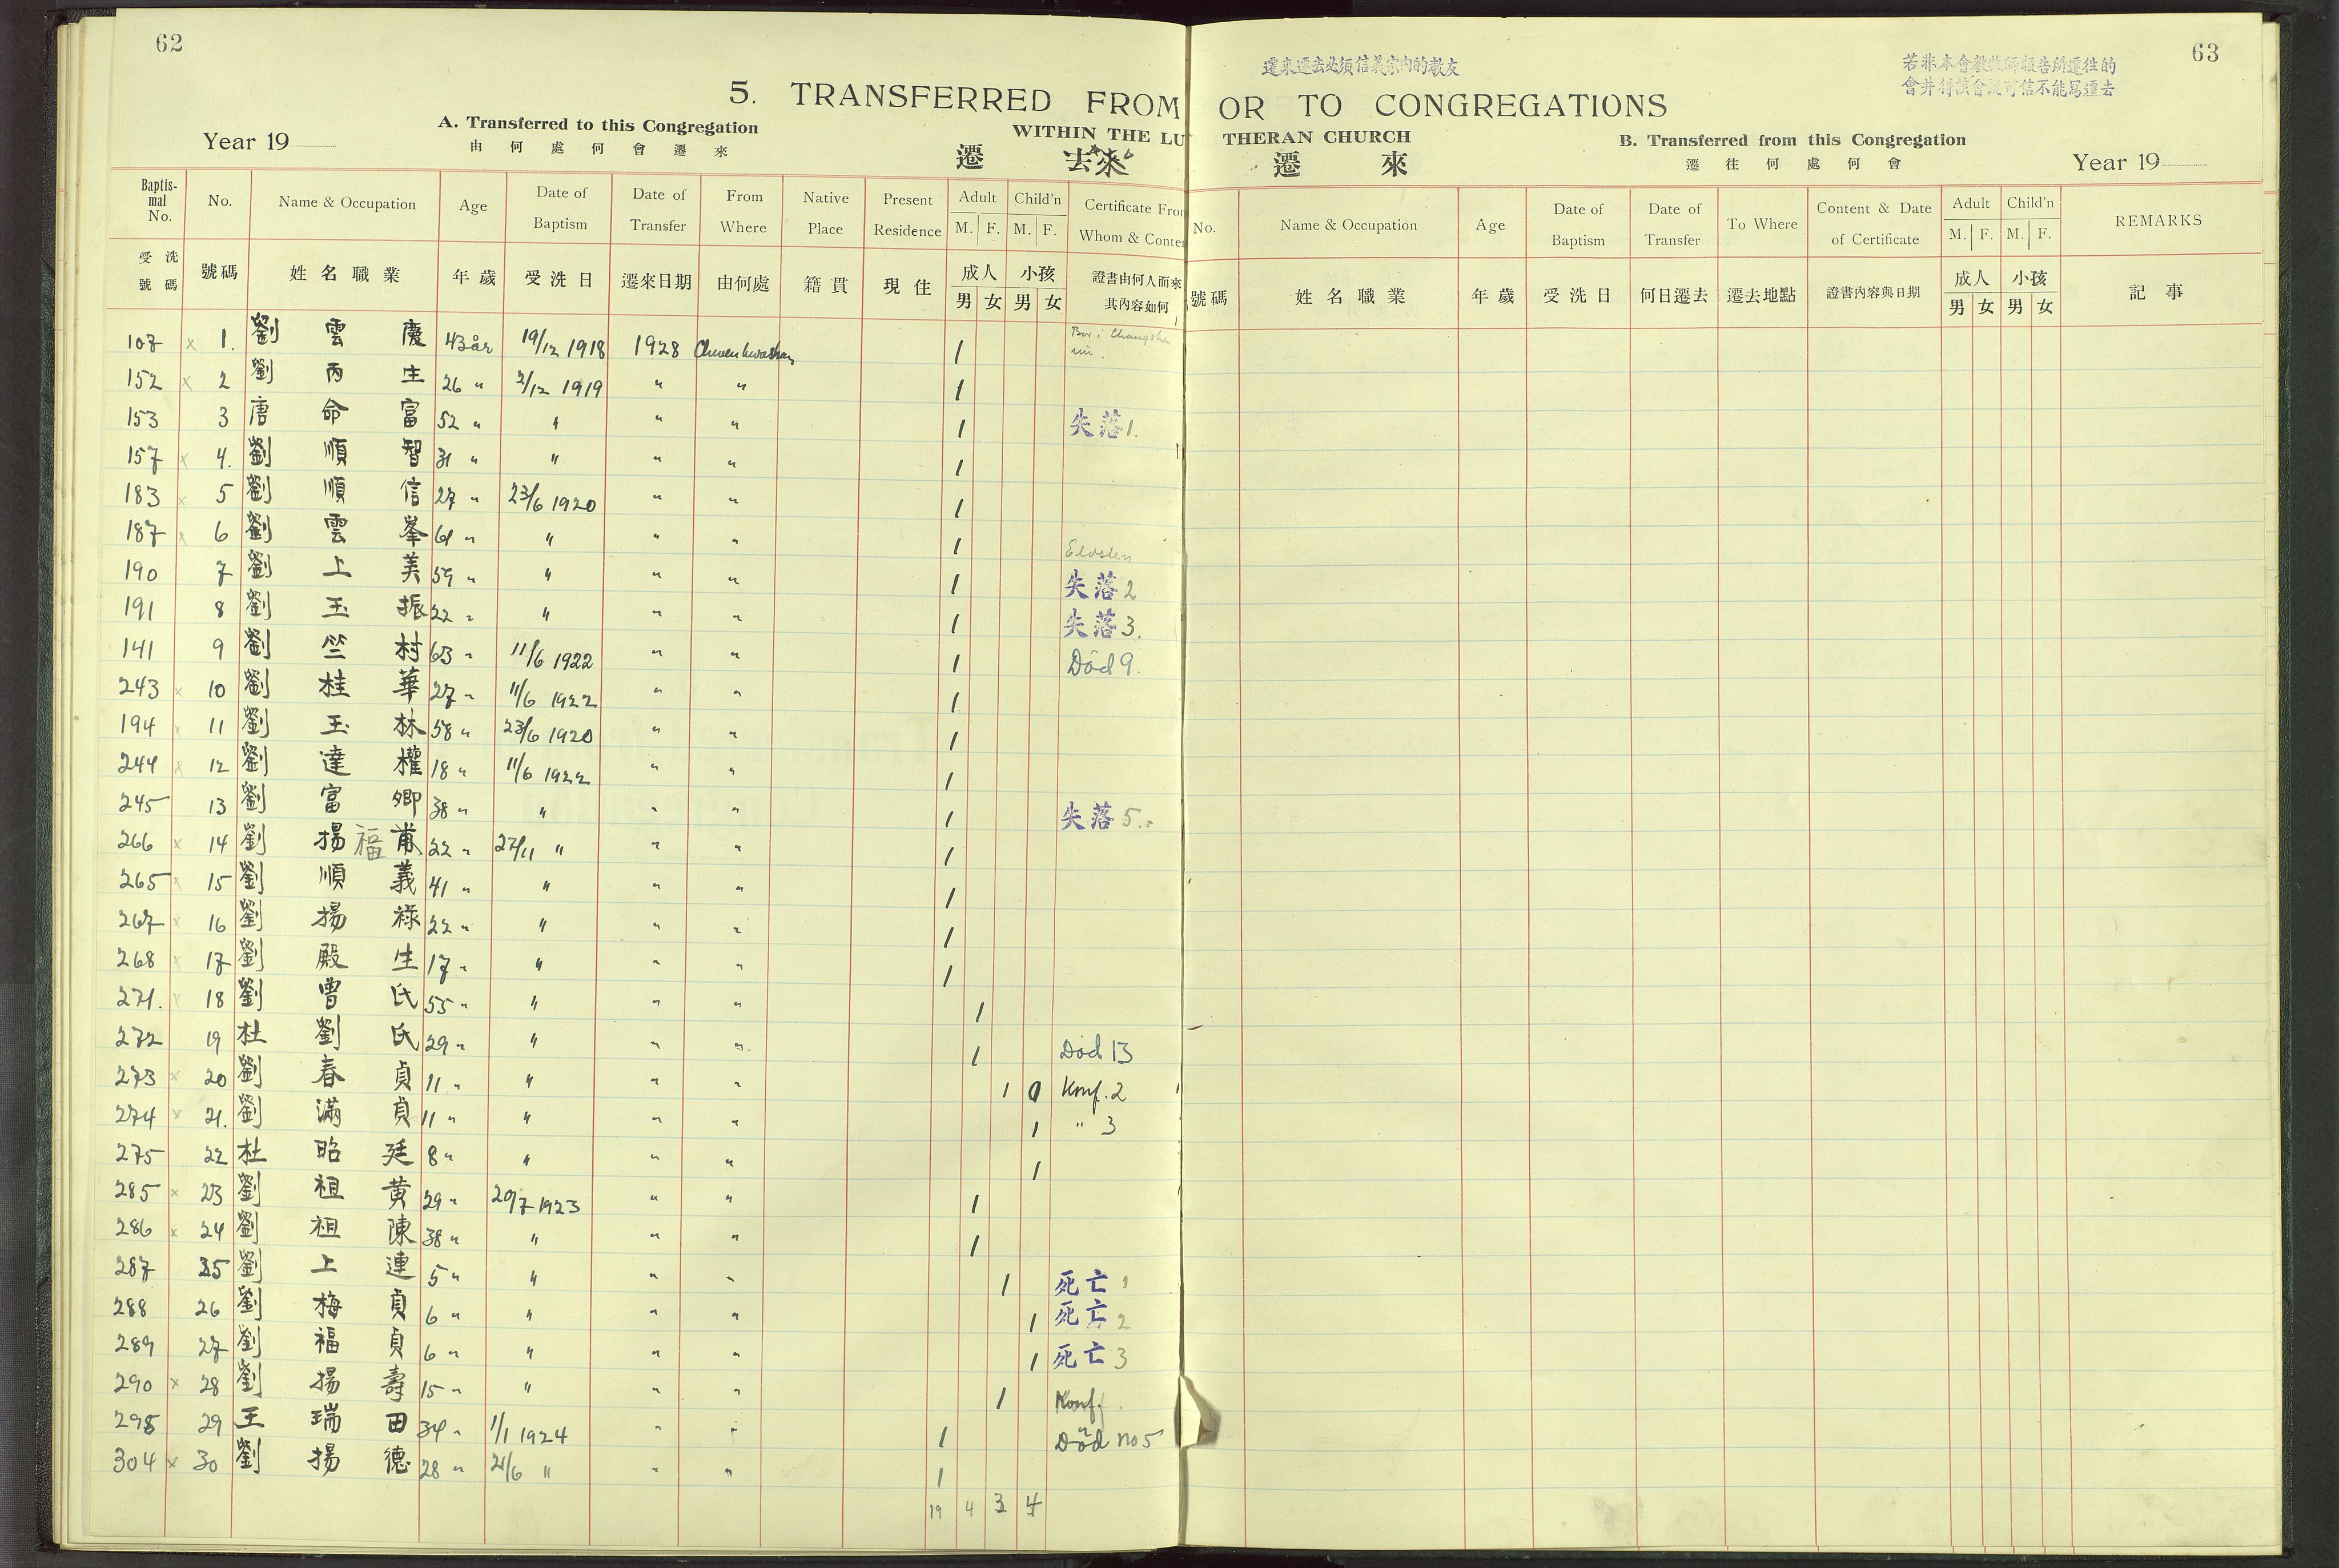 62
63
遷來遷去必須信義宗內的教友
若非本會教牧師報告所遷往的
會并得該會認可信不能寫遷去
5. TRANSFERRED FROM OR TO CONGREGATIONS
WITHIN THE LUTHERAN CHURCH
Year 19
A. Transferred to this Congregation
由何處何會遷來
遷 去來
遷 來
B. Transferred from this Congregation
遷往何處何會
Year 19
Baptismal No. No. Name & Occupation Age Date of Baptism Date of Transfer From Where Native Place Present Residence Adult M. F. Child'n M. F. Certificate From Whom & Conten
受洗號碼 號碼 姓名職業 年歲 受洗日 遷來日期 由何處 籍貫 現住 成人 男 女 小孩 男 女 證書由何人而來其內容如何
No. Name & Occupation Age Date of Baptism Date of Transfer To Where Content & Date of Certificate Adult M. F. Child'n M. F. REMARKS
號碼 姓名職業 年歲 受洗日 何日遷去 遷去地點 證書內容與日期 成人 男 女 小孩 男 女 記事
107 x 1. 劉雲慶 43 år 19/12 1918 1928 1 Bor i Changsha
152 x 2 劉丙生 26 " 2/12 1919 " " 1
153 3 唐命富 52 " " " " 1 失落 1.
157 x 4. 劉順智 31 " " " " 1
183 x 5 劉順信 27 " 23/6 1920 " " 1
187 x 6 劉雲峯 61 " " " " 1
190 7 劉上美 59 " " " " 1 失落 2
191 8 劉玉振 22 " " " " 1 失落 3.
141 9 劉竺村 63 " 11/6 1922 " " 1 Död 9.
243 x 10 劉桂華 27 " 11/6 1922 " " 1
194 x 11 劉玉林 58 " 23/6 1920 " " 1
244 x 12 劉達權 18 " 11/6 1922 " " 1
245 13 劉富卿 38 " " " " 1 失落 5.
266 x 14 劉揚福甫 22 " 27/11 " " " 1
265 x 15 劉順義 41 " " " " 1
267 x 16 劉揚祿 22 " " " " 1
268 x 17 劉殿生 17 " " " " 1
271. x 18 劉曾氏 55 " " " " 1
272 19 杜劉氏 29 " " " " 1 Död 13
273 x 20 劉春貞 11 " " " " 1 0 Konf. 2
274 x 21. 劉滿貞 11 " " " " 1 " 3
275 22 杜昭廷 8 " " " " 1
285 x 23 劉祖黃 29 " 29/7 1923 " " 1
286 x 24 劉祖陳 38 " " " " 1
287 25 劉上連 5 " " " " 1 死亡 1
288 26 劉梅貞 6 " " " " 1 死亡 2
289 27 劉福貞 6 " " " " 1 死亡 3
290 x 28 劉揚壽 15 " " " " 1 Konf.
298 29 王瑞田 34 " 1/1 1924 " " 1 Död no 5
304 x 30 劉揚德 28 " 21/6 " " " 1
19 4 3 4